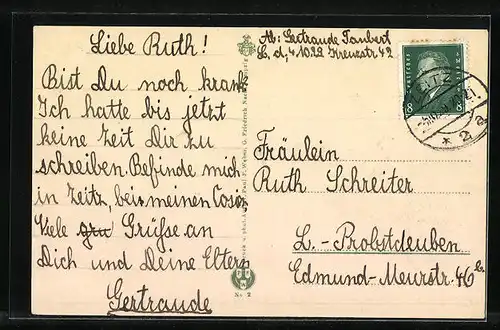 Liebe Ruth!
Bist Du noch krank,
Ich hatte bis jetzt
keine Zeit Dir zu
schreiben. Befinde mich
in Zeitz, bei meinen Cosin
Viele Grüsse an
Dich und Deine Eltern
Gertraude
Ab: Gertraude Taubert
Kreuzstr 42
Fräulein
Ruth Schreiter
L.-Probstdeuben
Edmund-Meurstr. 46b
8 8
ZEITZ
* 2a
No 2